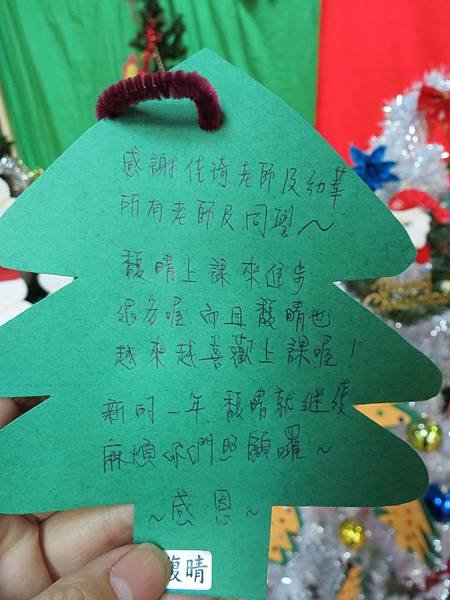 感謝佳琦老師及幼華
所有老師及同學～
馥晴上課來進步
很多喔 而且馥晴也
越來越喜歡上課喔！
新的一年,馥晴就繼續
麻煩你們照顧囉～
～感恩～
馥晴